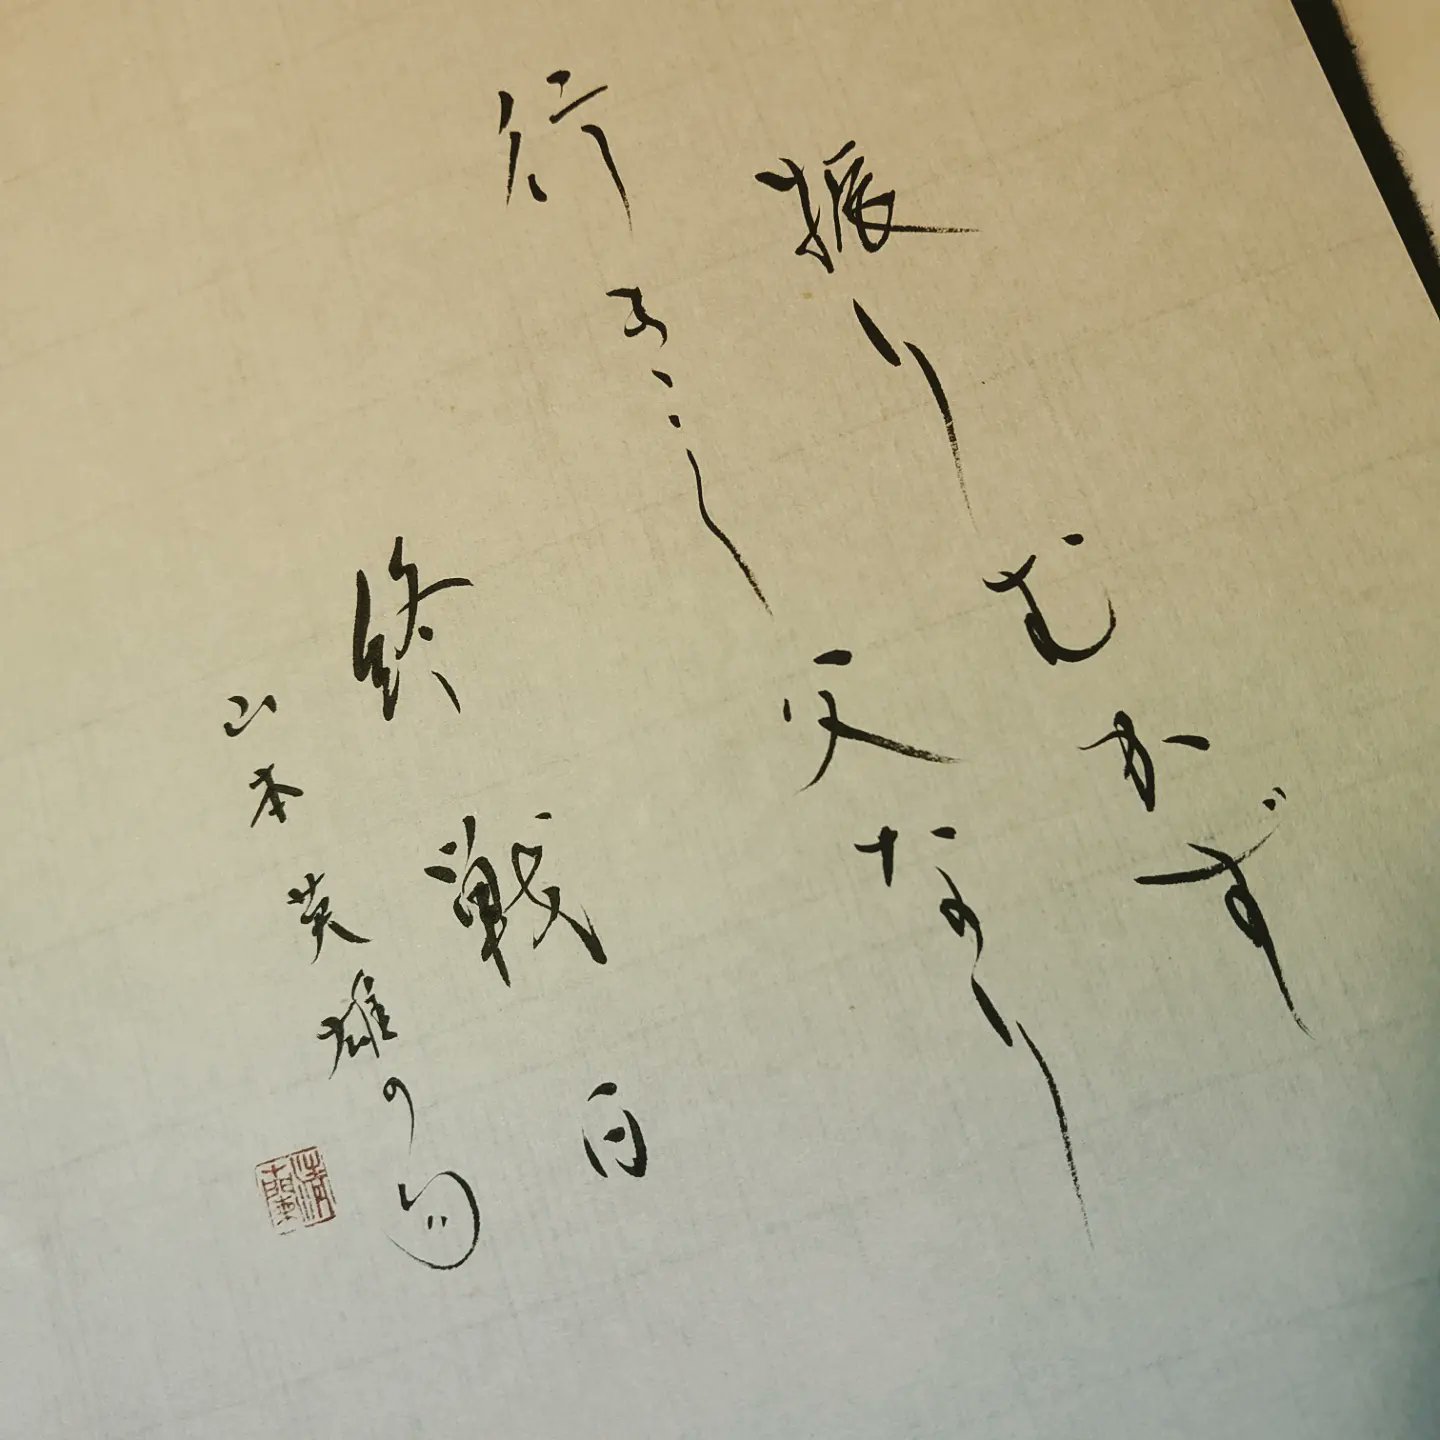 振りむかず
行きし父なり
終戦日
山本英雄の句
清蘭